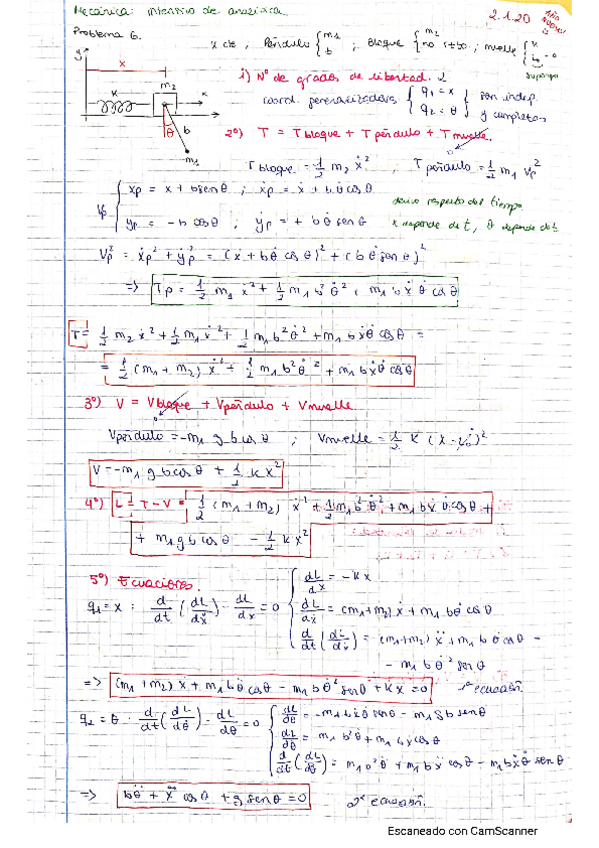 Mecánica: intensivo de analítica.
2.1.20
Problema 6.
x cte, Péndulo { m1 b ; bloque { m2 no rota ; muelle { K l0 = 0
supongo
1) Nº de grados de libertad. 2
coord. generalizadas { q1 = x q2 = θ } son indep. y completas
y x K m2 x θ b m1
2º) T = Tbloque + Tpéndulo + Tmuelle.
0
Tbloque = 1/2 m2 ẋ² ; Tpéndulo = 1/2 m1 vp²
vp { xp = x + b senθ ; ẋp = ẋ + b θ̇ cosθ
yp = - b cosθ ; ẏp = + b θ̇ senθ
derivo respecto del tiempo
x depende de t, θ depende de t
vp² = ẋp² + ẏp² = (ẋ + b θ̇ cosθ)² + (b θ̇ senθ)²
=> Tp = 1/2 m1 ẋ² + 1/2 m1 b² θ̇² + m1 b ẋ θ̇ cosθ
T = 1/2 m2 ẋ² + 1/2 m1 ẋ² + 1/2 m1 b² θ̇² + m1 b ẋ θ̇ cosθ =
= 1/2 (m1 + m2) ẋ² + 1/2 m1 b² θ̇² + m1 b ẋ θ̇ cosθ
3º) V = Vbloque + Vpéndulo + Vmuelle
0
Vpéndulo = - m1 g b cosθ ; Vmuelle = 1/2 K (x - l0)²
V = - m1 g b cosθ + 1/2 K x²
4º) L = T - V = 1/2 (m1 + m2) ẋ² + 1/2 m1 b² θ̇² + m1 b ẋ θ̇ cosθ +
+ m1 g b cosθ - 1/2 K x²
5º) Ecuaciones.
q1 = x : d/dt (dL/dẋ) - dL/dx = 0 { dL/dx = - K x
dL/dẋ = (m1+m2) ẋ + m1 b θ̇ cosθ
d/dt (dL/dẋ) = (m1+m2) ẍ + m1 b θ̈ cosθ -
- m1 b θ̇² senθ
=> (m1 + m2) ẍ + m1 b θ̈ cosθ - m1 b θ̇² senθ + K x = 0 1ª ecuación.
q2 = θ : d/dt (dL/dθ̇) - dL/dθ = 0 { dL/dθ = - m1 b ẋ θ̇ senθ - m1 g b senθ
dL/dθ̇ = m1 b² θ̇ + m1 b ẋ cosθ
d/dt (dL/dθ̇) = m1 b² θ̈ + m1 b ẍ cosθ - m1 b ẋ θ̇ senθ
=> b θ̈ + ẍ cosθ + g senθ = 0 2ª ecuación.
Escaneado con CamScanner